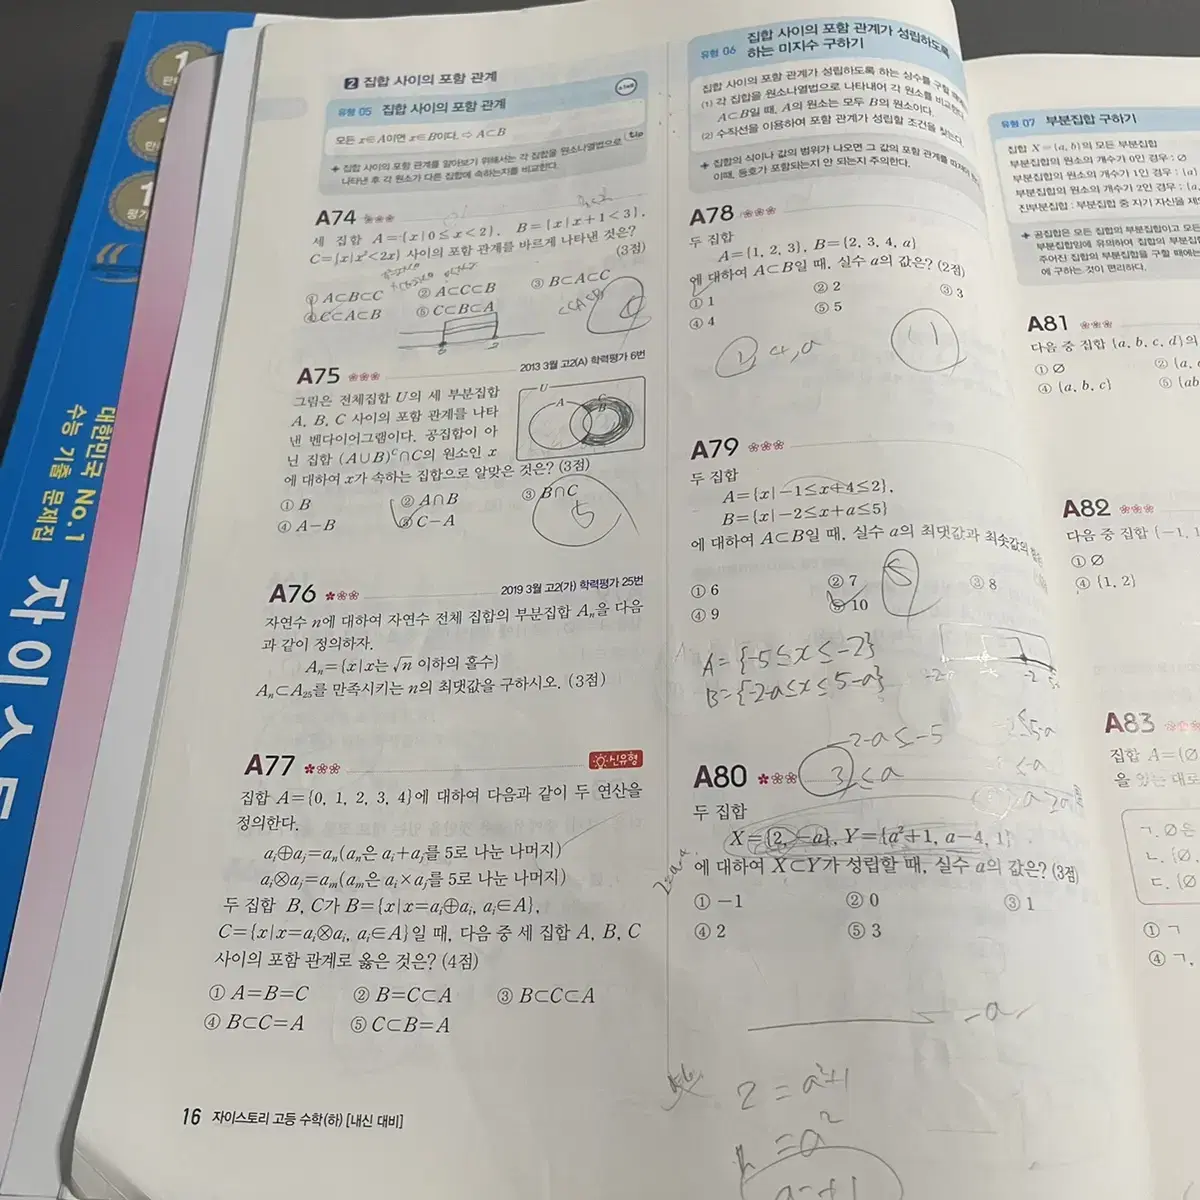 2 집합 사이의 포함 관계
유형 05 집합 사이의 포함 관계
모든 x∈A이면 x∈B이다. ⇨ A⊂B
tip
+ 집합 사이의 포함 관계를 알아보기 위해서는 각 집합을 원소나열법으로
나타낸 후 각 원소가 다른 집합에 속하는지를 비교한다.
A74
세 집합 A={x|0≤x<2}, B={x|x+1<3},
C={x|x²<2x} 사이의 포함 관계를 바르게 나타낸 것은?
(3점)
① A⊂B⊂C ② A⊂C⊂B ③ B⊂A⊂C
④ C⊂A⊂B ⑤ C⊂B⊂A
C⊂A⊂B
A75 2013 3월 고2(A) 학력평가 6번
그림은 전체집합 U의 세 부분집합
A, B, C 사이의 포함 관계를 나타
낸 벤다이어그램이다. 공집합이 아
닌 집합 (A∪B)ᶜ∩C의 원소인 x
에 대하여 x가 속하는 집합으로 알맞은 것은? (3점)
U
A
B
① B ② A∩B ③ B∩C
④ A−B ⑤ C−A
5
A76 2019 3월 고2(가) 학력평가 25번
자연수 n에 대하여 자연수 전체 집합의 부분집합 Aₙ을 다음
과 같이 정의하자.
Aₙ={x|x는 √n 이하의 홀수}
Aₙ⊂A₂₅를 만족시키는 n의 최댓값을 구하시오. (3점)
A77 신유형
집합 A={0, 1, 2, 3, 4}에 대하여 다음과 같이 두 연산을
정의한다.
aᵢ⊕aⱼ=aₙ(aₙ은 aᵢ+aⱼ를 5로 나눈 나머지)
aᵢ⊗aⱼ=aₘ(aₘ은 aᵢ×aⱼ를 5로 나눈 나머지)
두 집합 B, C가 B={x|x=aᵢ⊕aᵢ, aᵢ∈A},
C={x|x=aᵢ⊗aᵢ, aᵢ∈A}일 때, 다음 중 세 집합 A, B, C
사이의 포함 관계로 옳은 것은? (4점)
① A=B=C ② B=C⊂A ③ B⊂C⊂A
④ B⊂C=A ⑤ C⊂B=A
16 자이스토리 고등 수학(하) [내신 대비]
유형 06 집합 사이의 포함 관계가 성립하도록
하는 미지수 구하기
집합 사이의 포함 관계가 성립하도록 하는 상수를 구할 때에는
(1) 각 집합을 원소나열법으로 나타내어 각 원소를 비교한다.
A⊂B일 때, A의 원소는 모두 B의 원소이다.
(2) 수직선을 이용하여 포함 관계가 성립할 조건을 찾는다.
+ 집합의 식이나 값의 범위가 나오면 그 값의 포함 관계를
이때, 등호가 포함되는지 안 되는지 주의한다.
A78
두 집합
A={1, 2, 3}, B={2, 3, 4, a}
에 대하여 A⊂B일 때, 실수 a의 값은? (2점)
① 1 ② 2 ③ 3
④ 4 ⑤ 5
1 4, a
A79
두 집합
A={x|−1≤x+4≤2},
B={x|−2≤x+a≤5}
에 대하여 A⊂B일 때, 실수 a의 최댓값과 최솟값의
① 6 ② 7 ③ 8
④ 9 ⑤ 10
5
A={-5≤x≤-2}
B={-2-a≤x≤5-a}
-2-a≤-5
3≤a
A80
두 집합
X={2, −a}, Y={a²+1, a−4, 1}
에 대하여 X⊂Y가 성립할 때, 실수 a의 값은? (3점)
① −1 ② 0 ③ 1
④ 2 ⑤ 3
-a
2=a²+1
=a²
유형 07 부분집합 구하기
집합 X={a, b}의 모든 부분집합
부분집합의 원소의 개수가 0인 경우 : ∅
부분집합의 원소의 개수가 1인 경우 : {a}
부분집합의 원소의 개수가 2인 경우 : {a,
진부분집합 : 부분집합 중 자기 자신을
+ 공집합은 모든 집합의 부분집합이고 모든
부분집합임에 유의하여 집합의
주어진 집합의 부분집합을 구할 때에는
에 구하는 것이 편리하다.
A81
다음 중 집합 {a, b, c, d}의
① ∅ ② {a,
④ {a, b, c} ⑤ {ab
A82
다음 중 집합 {−1, 1
① ∅
④ {1, 2}
A83
집합 A={∅
을 있는 대로
ㄱ. ∅은
ㄴ. {∅
ㄷ. {∅,
① ㄱ
④ ㄱ,
대한민국 No.1
수능 기출 문제집
자이스토